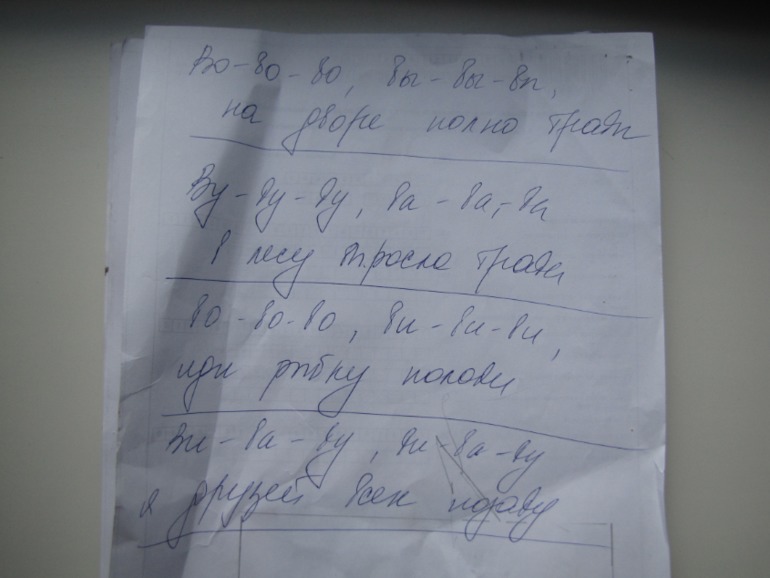 Во-во-во, вы-вы-вы,
на дворе полно травы
Ву-ву-ву, ва-ва,-ва
В лесу выросла трава
Во-во-во, ви-ви-ви,
иди рыбку полови
Ви-ва-ву, ви-ва-ву
я друзей всех позову